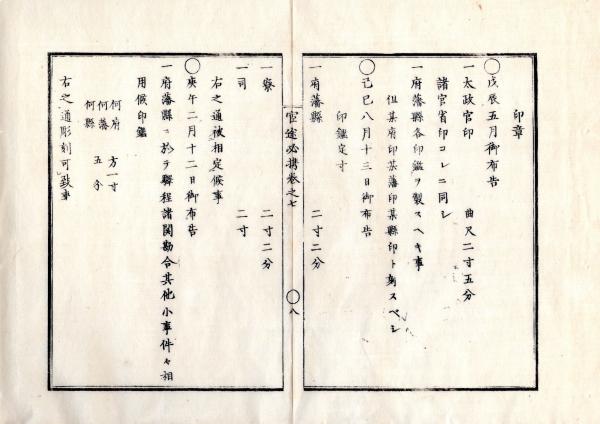 印章
○戊辰五月御布告
一太政官印　曲尺二寸五分
諸官省印コレニ同シ
一府藩縣各印鑑ヲ製スヘキ事
但某府印某藩印某縣印ト刻スベシ
○己巳八月十三日御布告
印鑑定寸
一府藩縣　二寸二分
官途必携巻之七　○八
一寮　二寸二分
一司　二寸
右之通被相定候事
○庚午二月十二日御布告
一府藩縣ニ於テ驛程諸関勘合其他小事件々相
用候印鑑
何府
何藩　方一寸
何縣　五分
右之通彫刻可致事